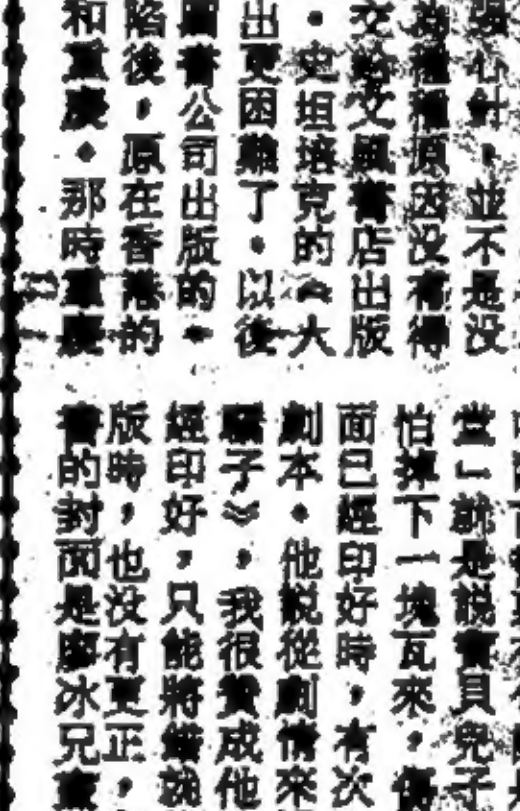 強心針，並不是没
為種種原因没有得
交給文風書店出版
。史坦培克的《大
出更困難了。以後
圖書公司出版的。
陷後，原在香港的
和重慶。那時重慶
堂」就是說寶貝兒子
怕掉下一塊瓦來，傷
面已經印好時，有次
劇本。他說從劇情來
騙子》，我很贊成他
經印好，只能將錯就
版時，也没有更正，
書的封面是廖冰兄